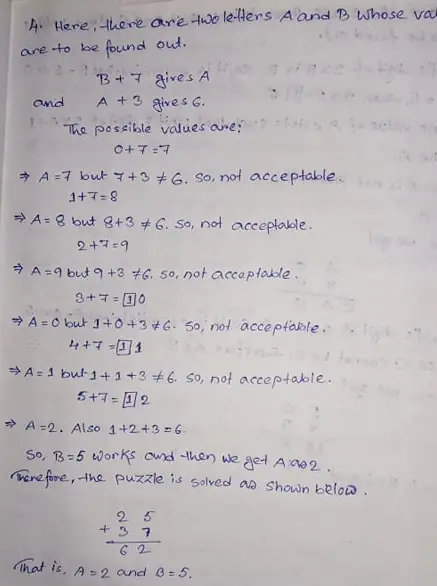 4. Here, there are two letters A and B whose
are to be found out.
B + 7 gives A
and A + 3 gives 6.
The possible values are:
0+7=7
⇒ A=7 but 7+3 ≠ 6. So, not acceptable.
1+7=8
⇒ A=8 but 8+3 ≠ 6. So, not acceptable.
2+7=9
⇒ A=9 but 9+3 ≠6. So, not acceptable.
3+7=[1]0
⇒ A=0 but 1+0+3≠6. So, not acceptable.
4+7=[1]1
⇒ A=1 but 1+1+3≠6. So, not acceptable.
5+7=[1]2
⇒ A=2. Also 1+2+3=6.
So, B=5 works and then we get A as 2.
Therefore, the puzzle is solved as shown below.
2 5
+ 3 7
6 2
That is, A=2 and B=5.